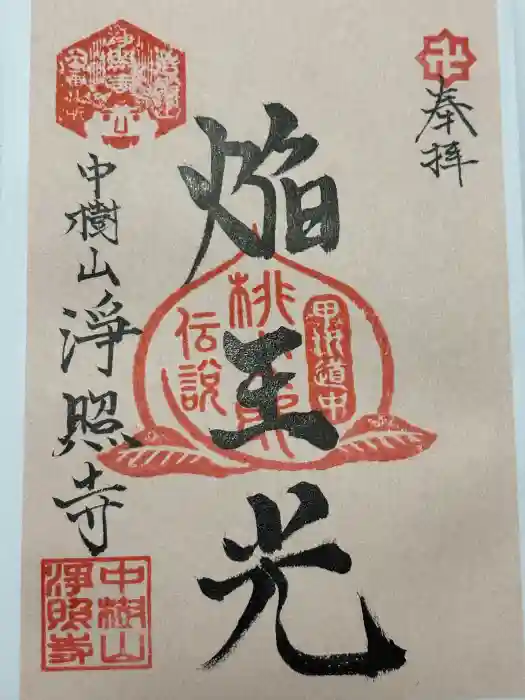 卍
奉拝
焔王光
甲州道中
桃太郎
伝説
中樹山
淨照寺
中樹山
淨照寺